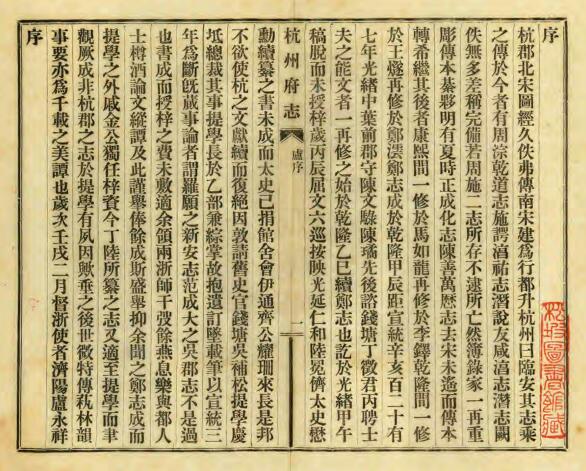 序
杭郡北宋圖經久佚弗傳南宋建爲行都升杭州曰臨安其志乘
之傳於今者有周淙乾道志施諤淳祐志潛說友咸淳志潛志闕
佚無多差稱完備若周施二志所存不逮所亡然簿錄家一再重
彫傳本綦夥明有夏時正成化志陳善萬厯志去宋未遙而傳本
轉希繼其後者康熙間一修於馬如龍再修於李鐸乾隆間一修
於王燧再修於鄭澐鄭志成於乾隆甲辰距宣統辛亥百二十有
七年光緒中葉前郡守陳文騄陳璚先後諮錢塘丁徵君丙聘士
夫之能文者一再修之始於乾隆乙巳續鄭志也訖於光緒甲午
稿脫而未授梓歲丙辰屈文六巡按映光延仁和陸冕儕太史懋
杭州府志
盧序
一
勳續纂之書未成而太史已捐館舍會伊通齊公耀珊來長是邦
不欲使杭之文獻續而復絕因敦請舊史官錢塘吳補松提學慶
坻總裁其事提學長於乙部兼綜掌故抱遺訂墜載筆以宣統三
年爲斷旣蕆事論者謂羅願之新安志范成大之吳郡志不是過
也書成而授梓之費未敷適余領兩浙師干戢餘燕息樂與都人
士樽酒論文縱譚及此謹舉俸餘成斯盛舉抑余聞之鄭志成而
提學之外戚金公獨任梓資今丁陸所纂之志又適至提學而聿
觀厥成非杭郡之志於提學有夙因歟垂之後世微特傳秇林韻
事要亦爲千載之美譚也歲次壬戌二月督浙使者濟陽盧永祥
序
松坡圖書館藏